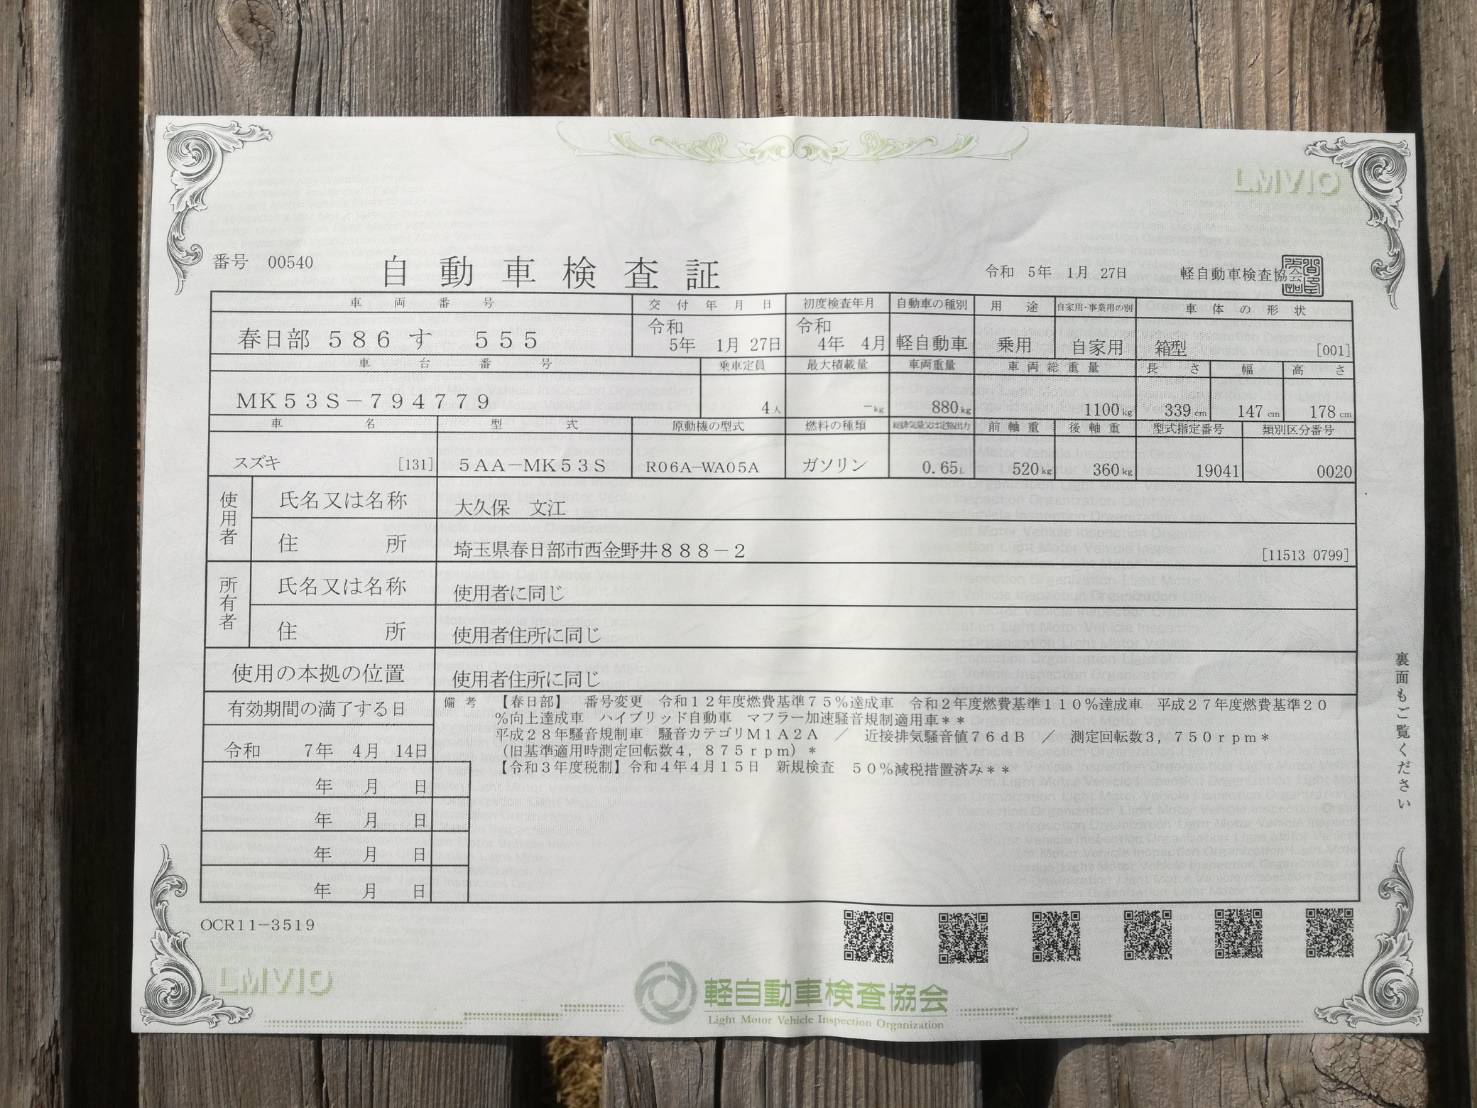 LMVIO
番号 00540 自動車検査証 令和 5年 1月 27日 軽自動車検査協会
車両番号 交付年月日 初度検査年月 自動車の種別 用途 自家用・事業用の別 車体の形状
春日部 586 す 555 令和 5年 1月 27日 令和 4年 4月 軽自動車 乗用 自家用 箱型 [001]
車台番号 乗車定員 最大積載量 車両重量 車両総重量 長さ 幅 高さ
MK53S-794779 4人 -kg 880kg 1100kg 339cm 147cm 178cm
車名 型式 原動機の型式 燃料の種類 総排気量又は定格出力 前軸重 後軸重 型式指定番号 類別区分番号
スズキ [131] 5AA-MK53S R06A-WA05A ガソリン 0.65L 520kg 360kg 19041 0020
使用者 氏名又は名称 大久保 文江
住所 埼玉県春日部市西金野井888-2 [11513 0799]
所有者 氏名又は名称 使用者に同じ
住所 使用者住所に同じ
使用の本拠の位置 使用者住所に同じ
有効期間の満了する日
令和 7年 4月 14日
年 月 日
年 月 日
年 月 日
年 月 日
備考 【春日部】 番号変更 令和12年度燃費基準75%達成車 令和2年度燃費基準110%達成車 平成27年度燃費基準20
%向上達成車 ハイブリッド自動車 マフラー加速騒音規制適用車**
平成28年騒音規制車 騒音カテゴリM1A2A / 近接排気騒音値76dB / 測定回転数3,750rpm*
(旧基準適用時測定回転数4,875rpm)*
【令和3年度税制】令和4年4月15日 新規検査 50%減税措置済み**
裏面もご覧ください
OCR11-3519
LMVIO
軽自動車検査協会
Light Motor Vehicle Inspection Organization